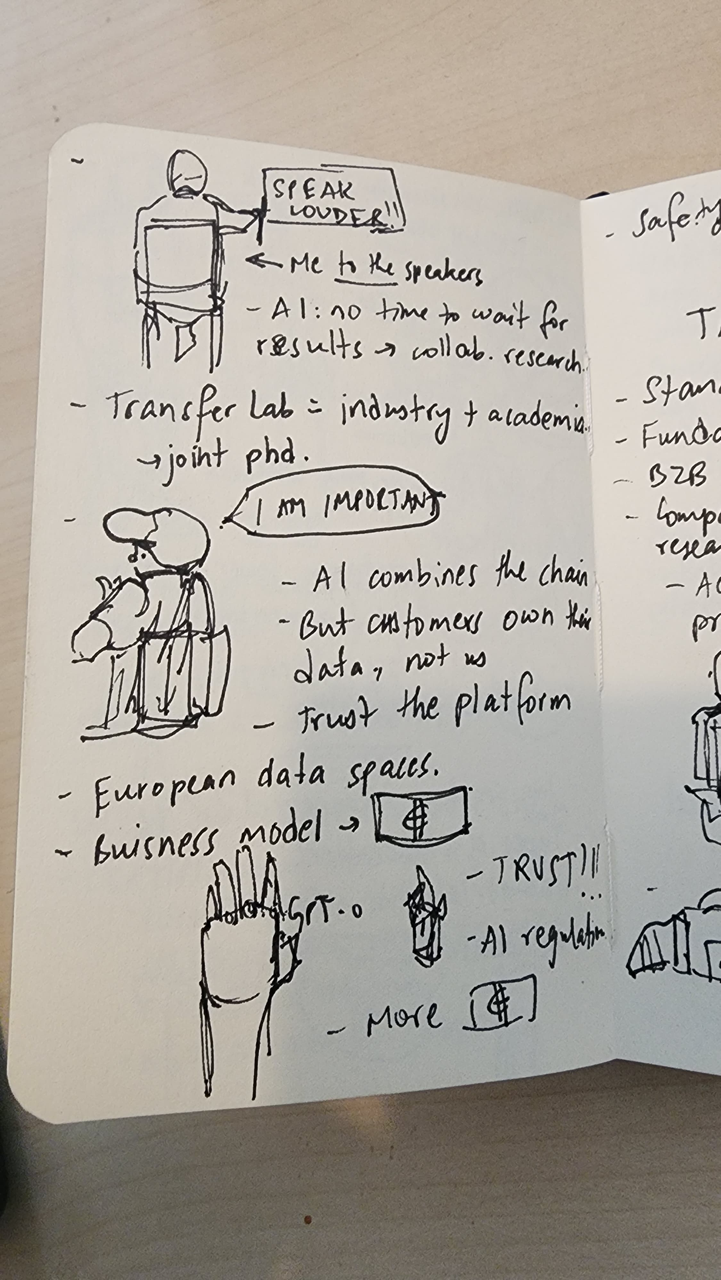 SPEAK
LOUDER!!
← Me to the speakers
- AI: no time to wait for
results → collab. research.
- Transfer Lab = industry + academia.
→ joint phd.
I AM IMPORTANT
- AI combines the chain
- But customers own their
data, not us
- Trust the platform
- European data spaces.
- Buisness model → $
- TRUST!!!
GPT-o
- AI regulation
- More $
- Safety
- Stan
- Funda
- B2B
- Comp
resea
- Ac
pr